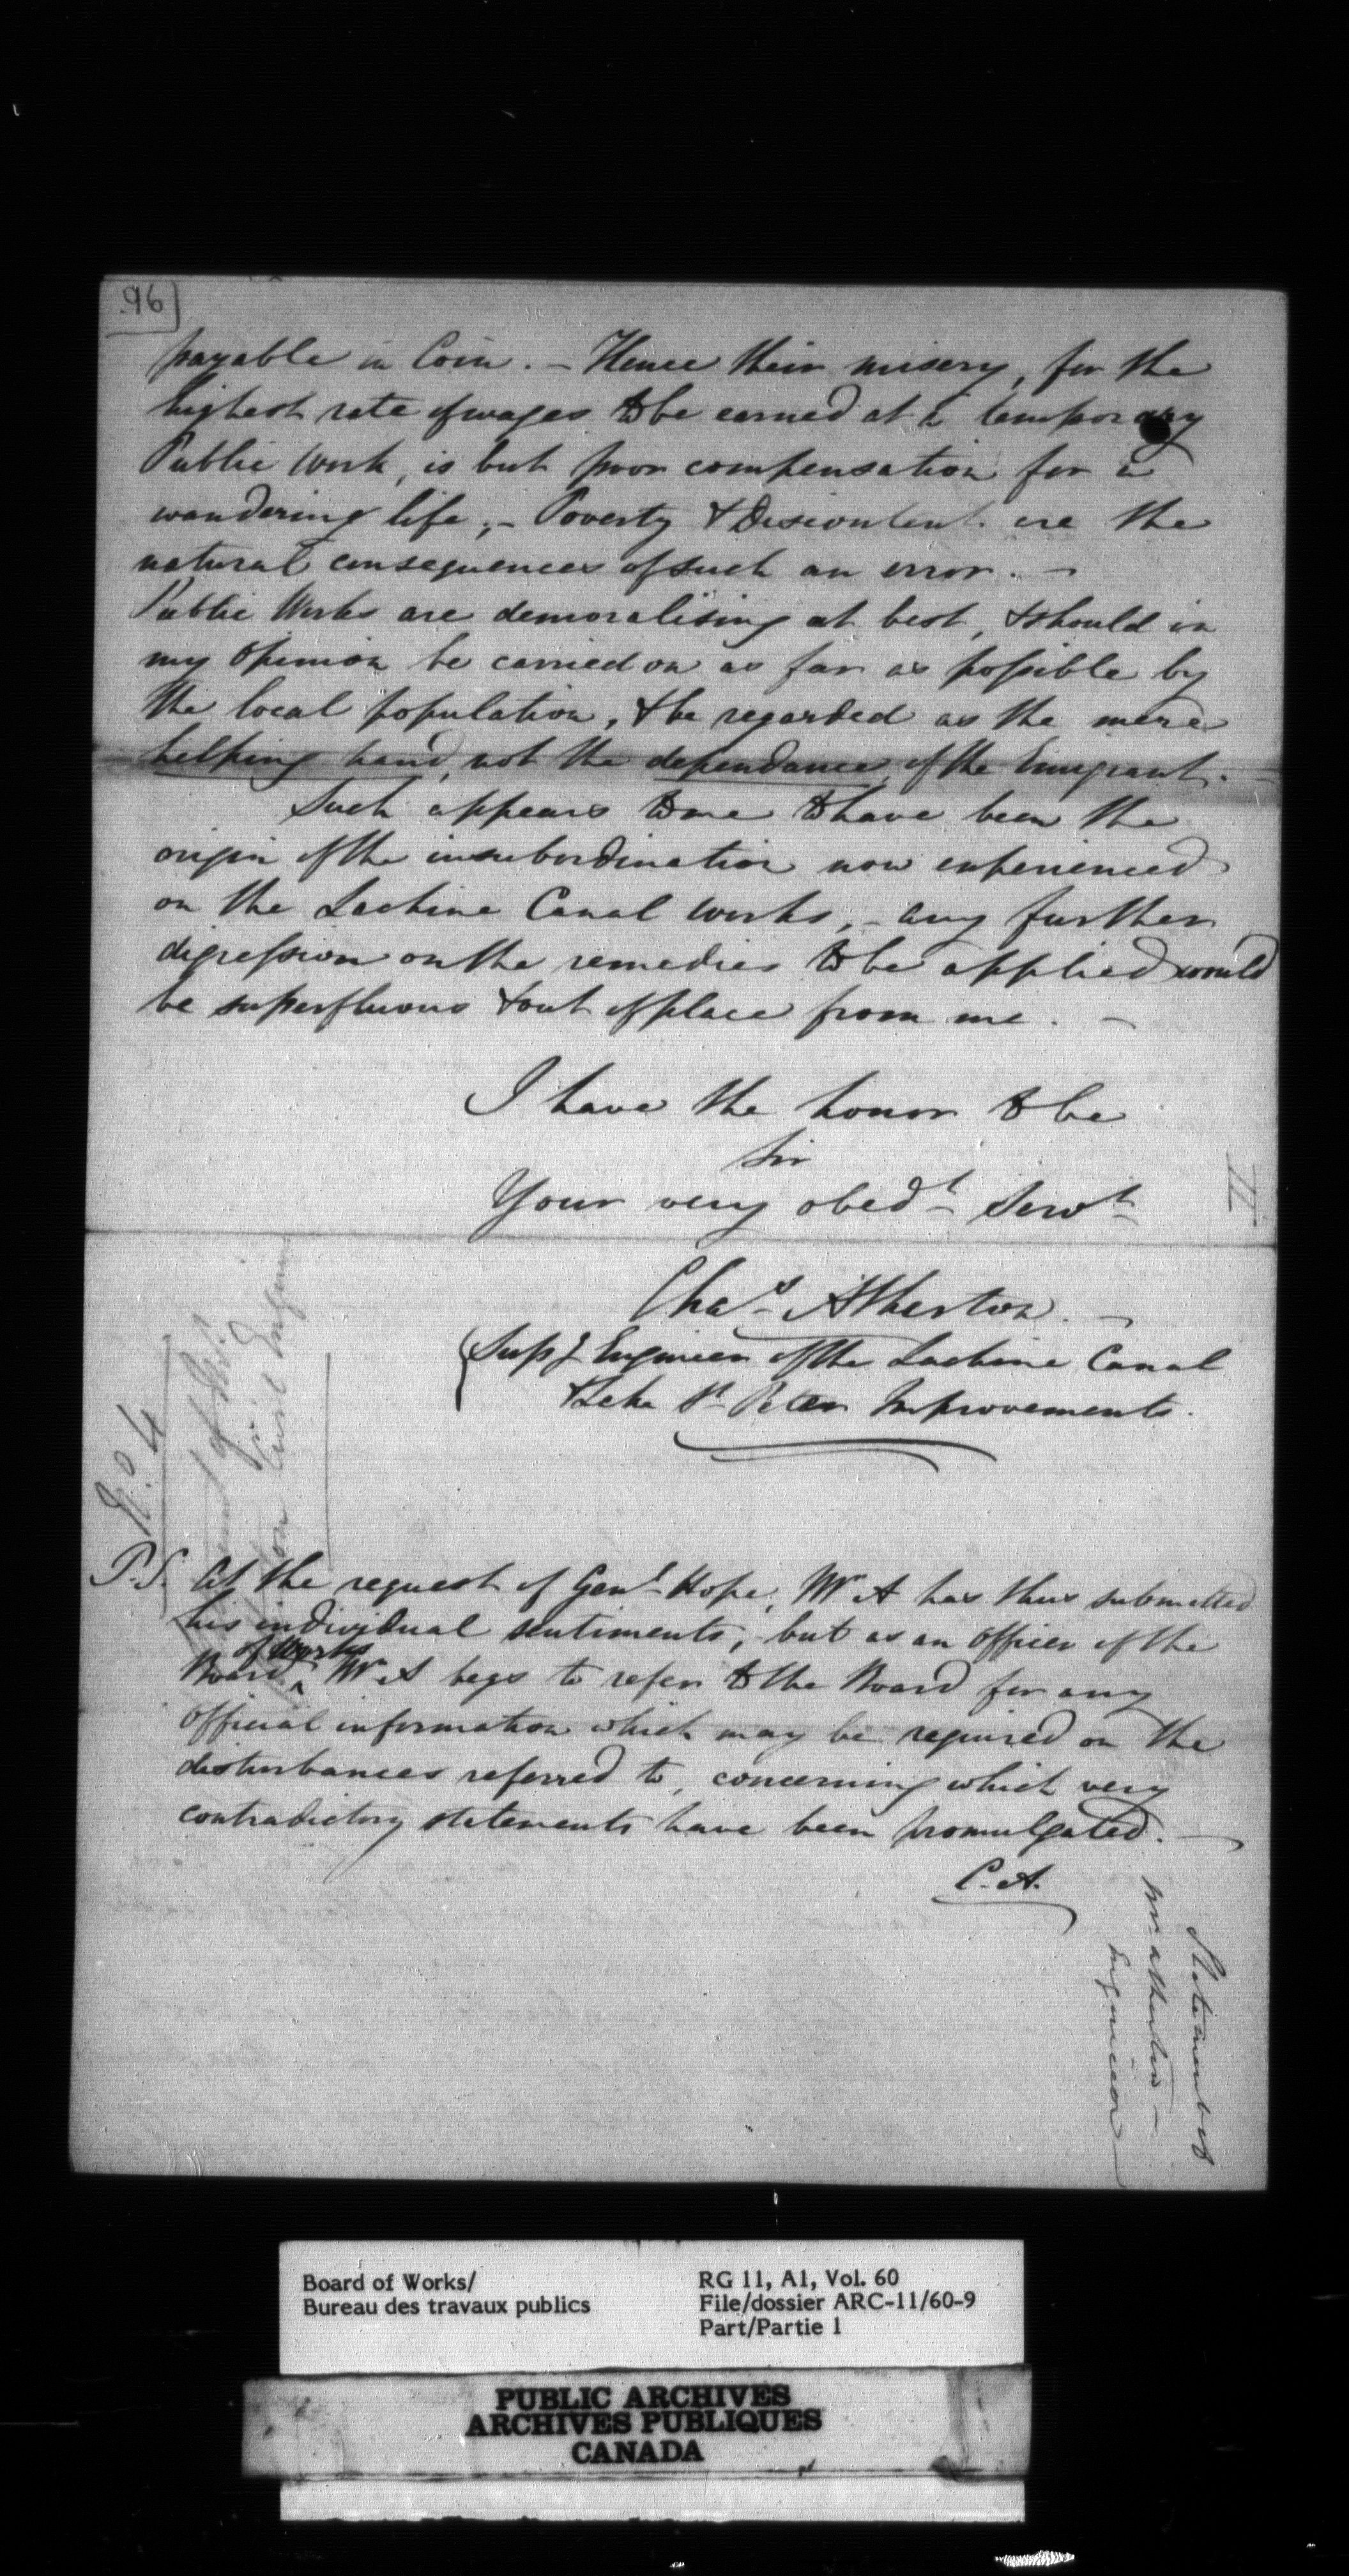 96
payable in Coin. – Hence their misery, for the
highest rate of wages to be earned at a temporary
Public Work, is but poor compensation for a
wandering life, – Poverty & Discontent are the
natural consequences of such an error. –
Public Works are demoralising at best, & should in
my opinion be carried on as far as possible by
the local population, & be regarded as the mere
helping hand, not the dependance of the Emigrant. –
Such appears to me to have been the
origin of the insubordination now experienced
on the Lachine Canal works, – any further
digression on the remedies to be applied would
be superfluous & out of place from me. –
I have the honor to be
Sir
Your very obedt Servt
Chas Atherton. –
Supg Engineer of the Lachine Canal
& Lake St Peter Improvements.
No 4
of Mr
Civil Engineer
P.S. At the request of Genl Hope, Mr A has thus submitted
his individual sentiments, – but as an officer of the
Board of Works Mr A begs to refer to the Board for any
official information which may be required on the
disturbances referred to, concerning which very
contradictory statements have been promulgated. –
C. A.
II
Statement of
Mr Atherton –
Engineer
Board of Works/
Bureau des travaux publics
RG 11, A1, Vol. 60
File/dossier ARC-11/60-9
Part/Partie 1
PUBLIC ARCHIVES
ARCHIVES PUBLIQUES
CANADA